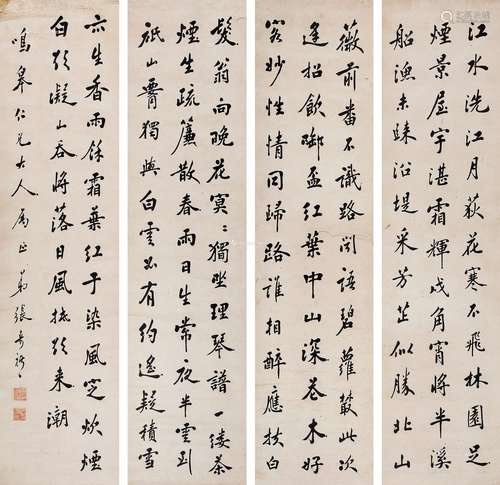 江水洗江月荻花寒不飛林園足
煙景屋宇湛霜輝戍角宵將半溪
船漁未歸沿堤采芳芷似勝北山
薇前番不識路問語碧蘿叢此次
逢招飲盃紅葉中山深巷木好
客妙性情同歸路誰相醉應扶白
髮翁向晚花冥〻獨坐理琴譜一縷茶
煙生疏簾散春雨日生常夜半雲到
祇山霽獨與白雲有約遙疑積雪
亦生香雨餘霜葉紅于染風定炊煙
白欲凝山吞將落日風挽欲來潮
鳴皋仁兄大人屬正弟張